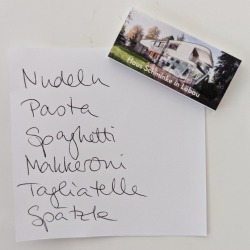 Haus Schminke in Löbau
Nudeln
Pasta
Spaghetti
Makkeroni
Tagliatelle
Spätzle